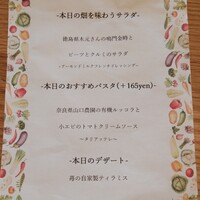 -本日の畑を味わうサラダ-
徳島県木元さんの鳴門金時と
ビーツとクルミのサラダ
~アーモンドミルクフレンチドレッシング~
-本日のおすすめパスタ(+165yen)-
奈良県山口農園の有機ルッコラと
小エビのトマトクリームソース
~タリアッテレ~
-本日のデザート-
苺の自家製ティラミス